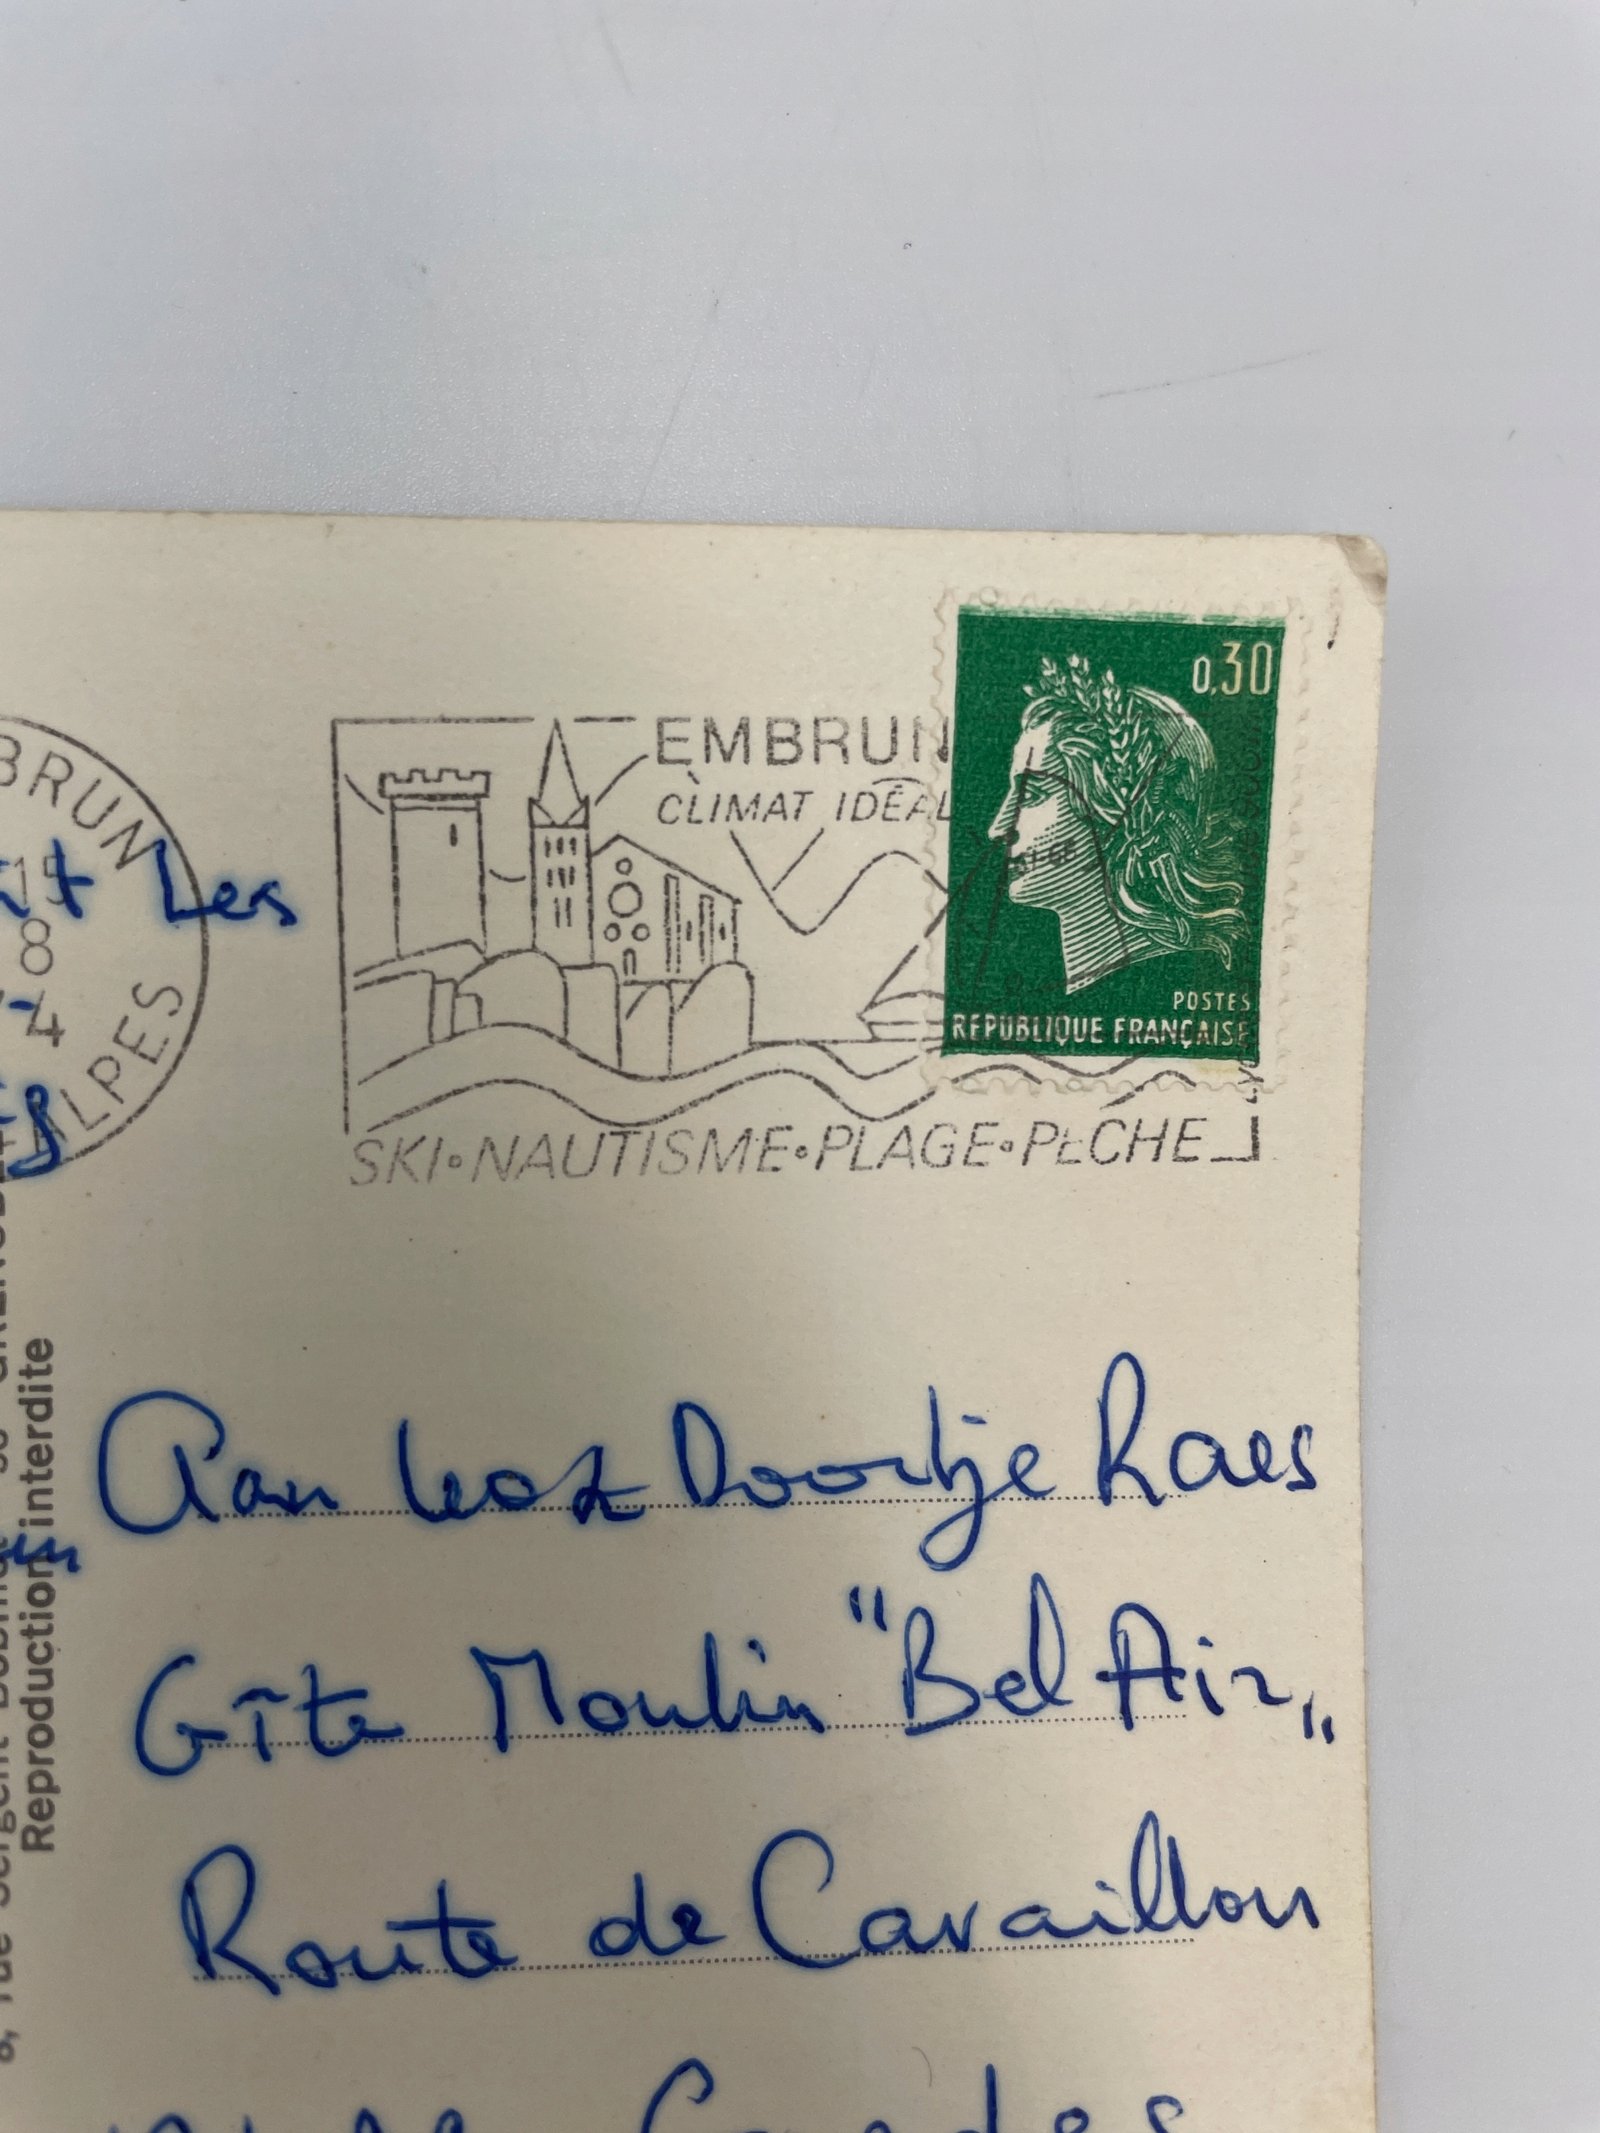 0,30
EMBRUN
CLIMAT IDÉAL
POSTES
REPUBLIQUE FRANÇAISE
SKI•NAUTISME•PLAGE•PÊCHE
BRUN
15
8
4
ALPES
Les
Reproduction interdite
8, rue Sergent Bobillot
Aan Doortje Raes
Gîte Moulin "Bel Air„
Route de Cavaillon
Gordes